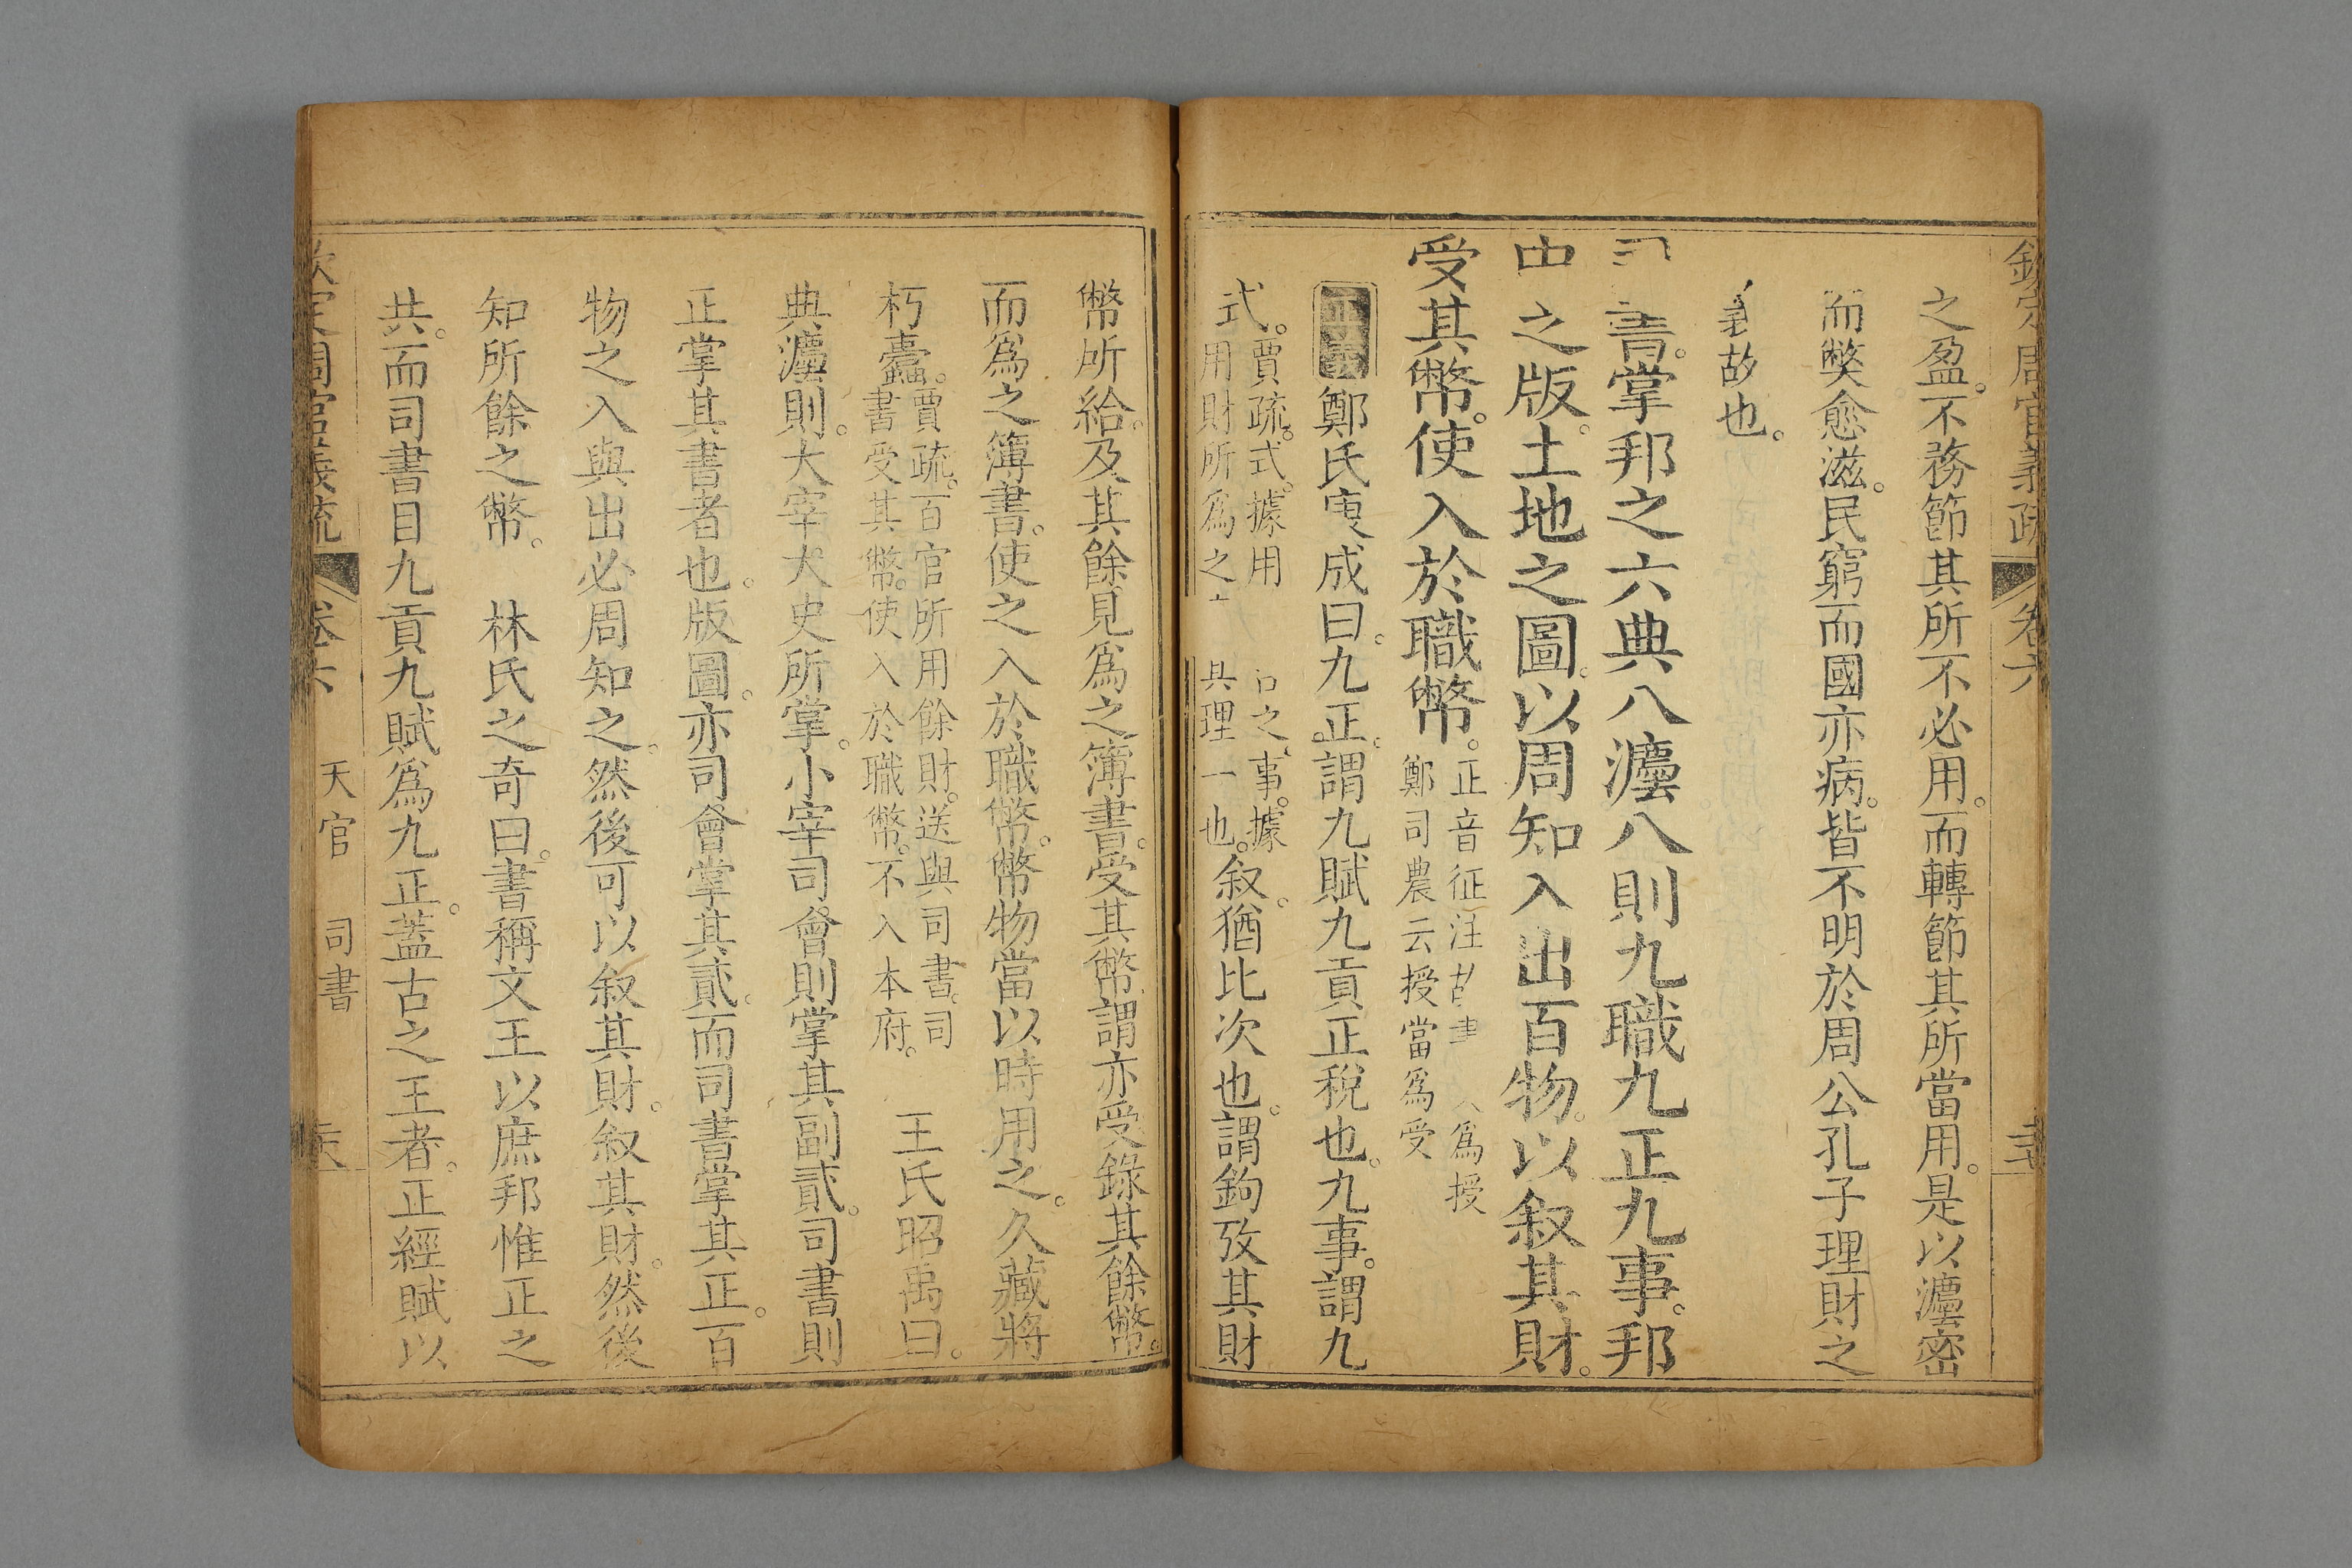 欽定周官義疏 卷六
之盈。不務節其所不必用。而轉節其所當用。是以灋密
而獘愈滋。民窮而國亦病。皆不明於周公孔子理財之
義故也。
書。掌邦之六典八灋八則九職九正九事。邦
中之版。土地之圖。以周知入出百物。以叙其財。
受其幣。使入於職幣。
正音征注故書 爲授
鄭司農云授當爲受
正義 鄭氏康成曰。九正。謂九賦九貢正稅也。九事。謂九
式。
賈疏。式。據用
用財所爲之
之事。據
理一也。
叙。猶比次也。謂鉤攷其財
幣所給。及其餘見爲之簿書。受其幣。謂亦受錄其餘幣。
而爲之簿書。使之入於職幣。幣物當以時用之。久藏將
朽蠹。
賈疏。百官所用餘財。送與司書。司
書受其幣。使入於職幣。不入本府。
王氏昭禹曰。
典灋則。大宰大史所掌。小宰司會則掌其副貳。司書則
正掌其書者也。版圖。亦司會掌其貳。而司書掌其正。百
物之入與出必周知之。然後可以叙其財。叙其財。然後
知所餘之幣。 林氏之奇曰。書稱文王以庶邦惟正之
共。而司書目九貢九賦爲九正。蓋古之王者。正經賦以
欽定周官義疏 卷六 天官 司書